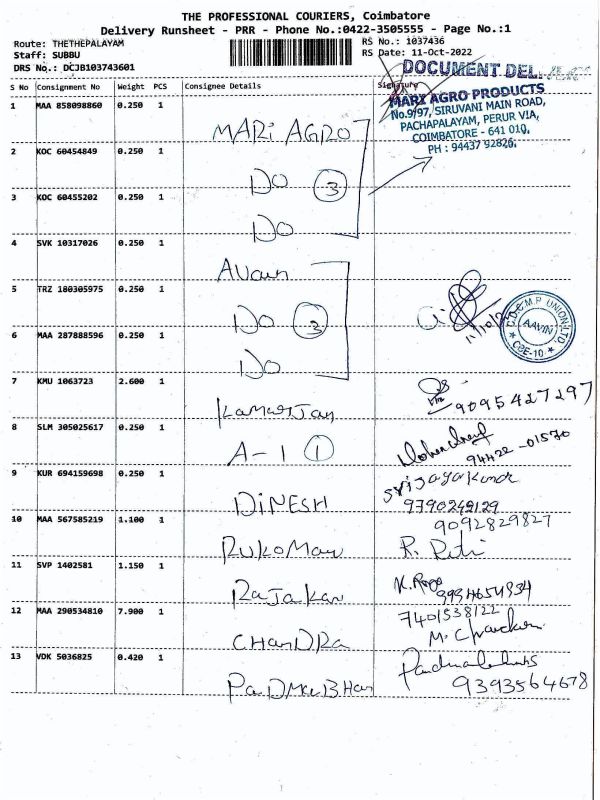 THE PROFESSIONAL COURIERS, Coimbatore
Delivery Runsheet - PRR - Phone No.:0422-3505555 - Page No.:1
Route: THETHEPALAYAM
Staff: SUBBU
DRS No.: DCJB103743601
RS No.: 1037436
RS Date: 11-Oct-2022
DOCUMENT DEL
S No Consignment No Weight PCS Consignee Details Signature
MARI AGRO PRODUCTS
No.9/97, SIRUVANI MAIN ROAD,
PACHAPALAYAM, PERUR VIA,
COIMBATORE - 641 010,
PH : 94437 92826,
1 MAA 858098860 0.250 1
MARI AGRO
2 KOC 60454849 0.250 1
DO 3
3 KOC 60455202 0.250 1
DO
4 SVK 10317026 0.250 1
Avain
5 TRZ 180305975 0.250 1
DO 3
C.D.C.M.P UNION LTD.
AAVIN
CBE-10
6 MAA 287888596 0.250 1
DO
7 KMU 1063723 2.600 1
9095427297
8 SLM 305025617 0.250 1
A-1 1
94422-01570
9 KUR 694159698 0.250 1
Srijayakumar
9790249129
DINESH
9092829827
10 MAA 567585219 1.100 1
11 SVP 1402581 1.150 1
12 MAA 290534810 7.900 1
7401538122
CHANDRA
13 VDK 5036825 0.420 1
9393564678